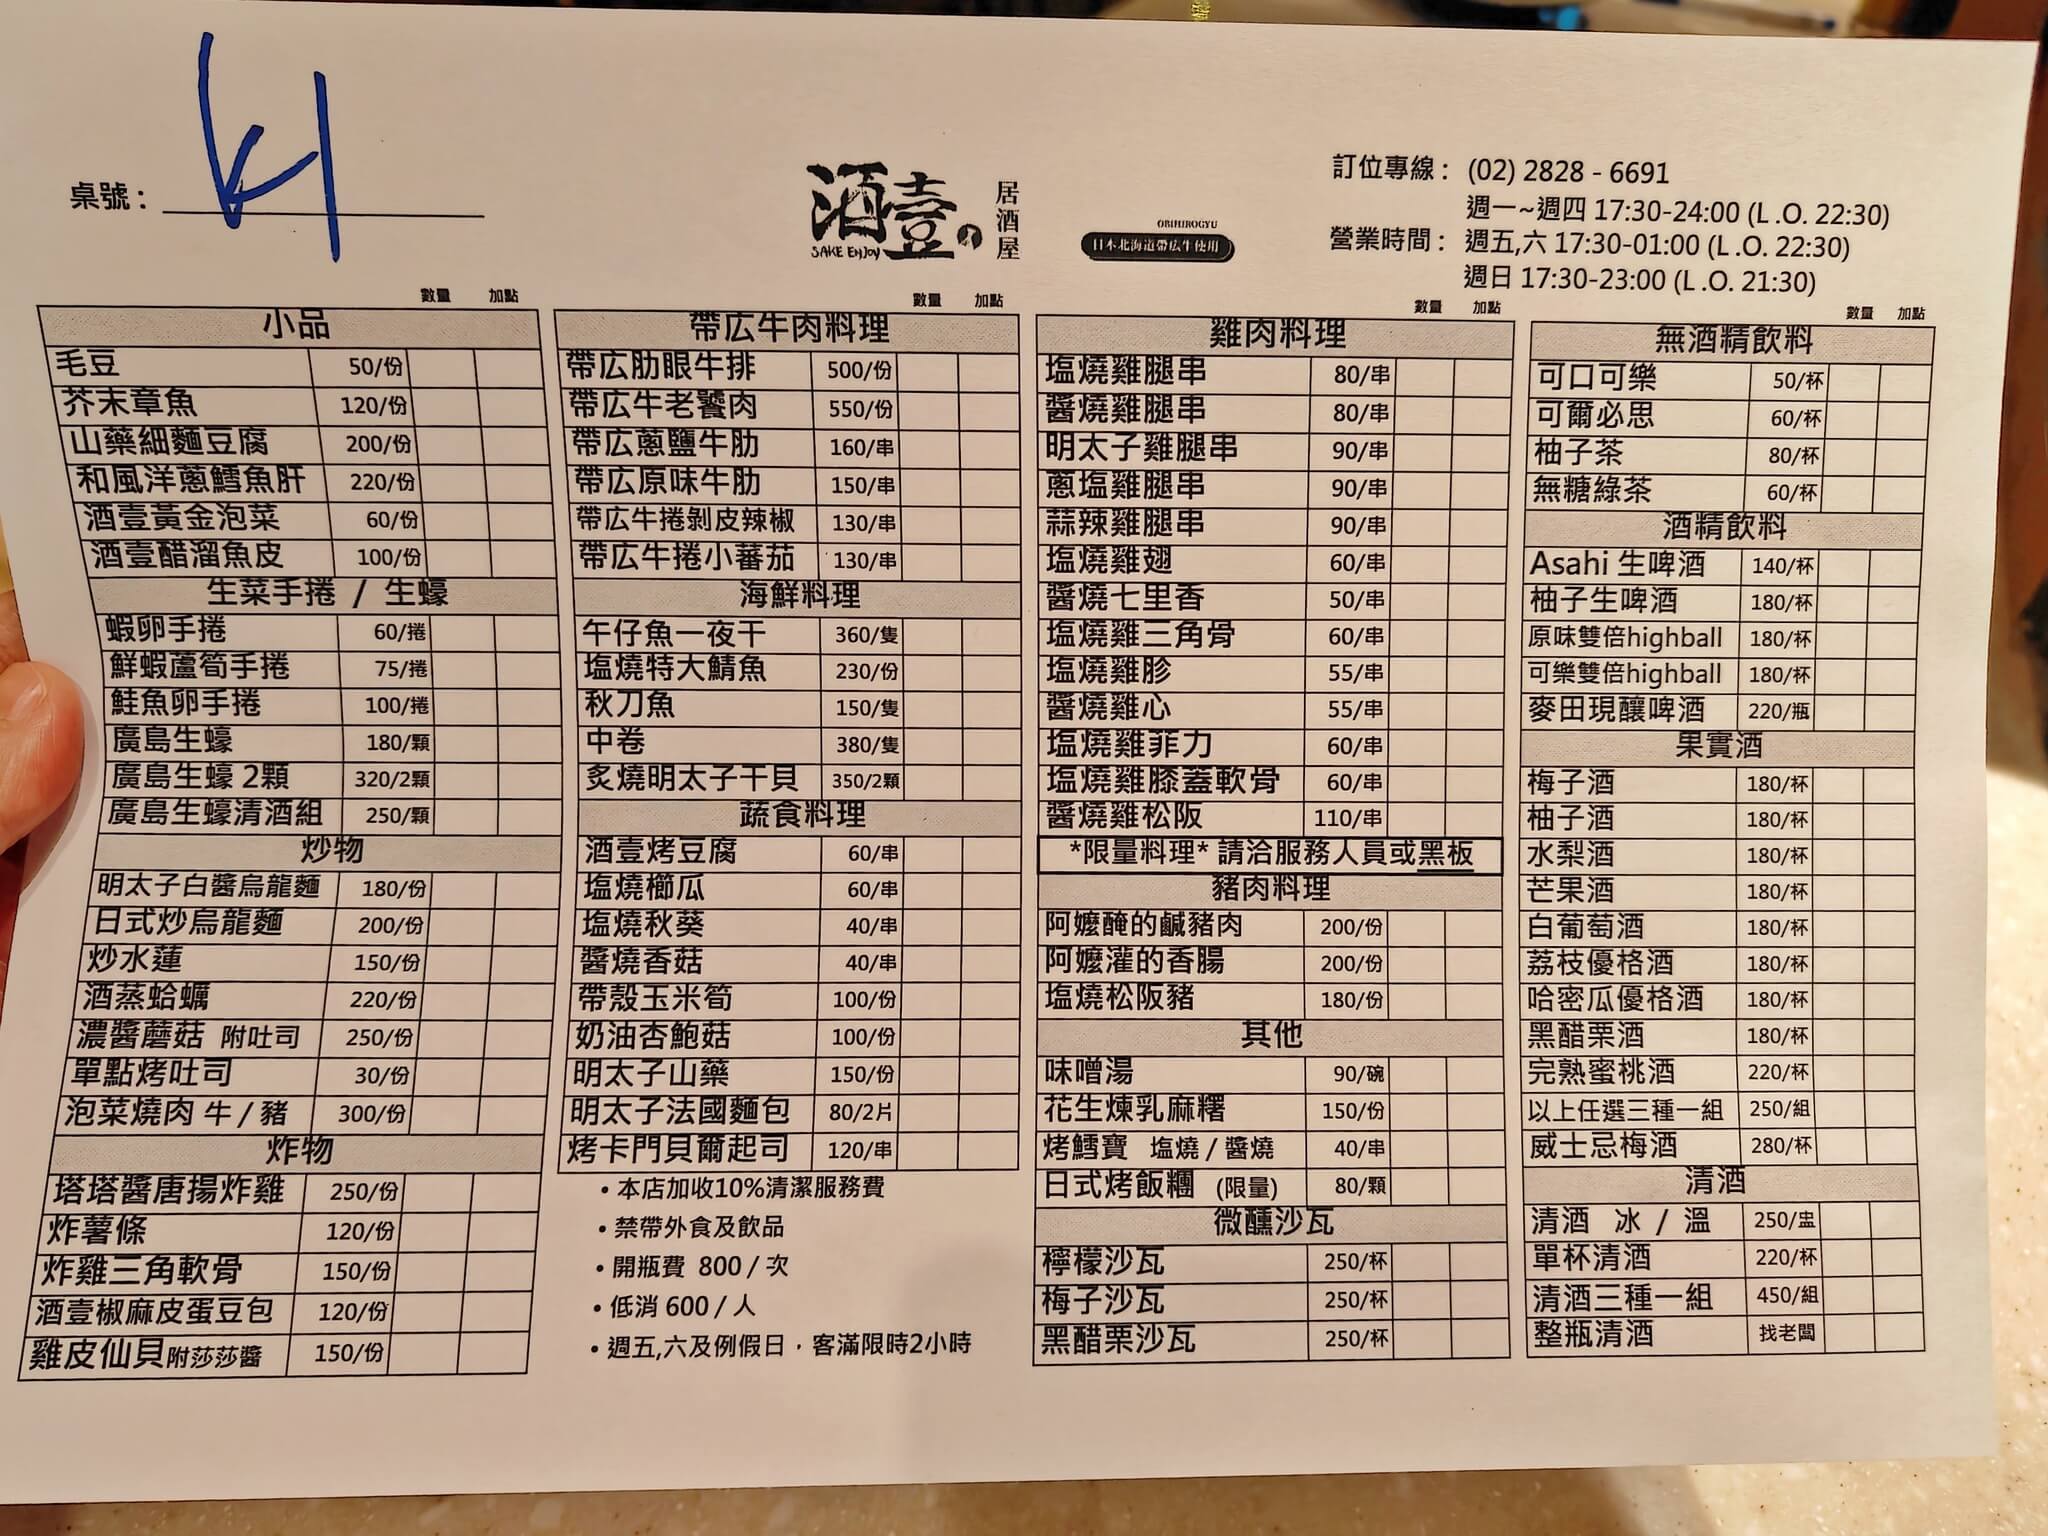 桌號：
酒壹
SAKE ENJOY
居酒屋
OBIHIROGYU
日本北海道帶広牛使用
訂位專線： (02) 2828 - 6691
營業時間： 週一~週四 17:30-24:00 (L .O. 22:30)
週五,六 17:30-01:00 (L .O. 22:30)
週日 17:30-23:00 (L .O. 21:30)
數量 加點
小品
毛豆 50/份
芥末章魚 120/份
山藥細麵豆腐 200/份
和風洋蔥鱈魚肝 220/份
酒壹黃金泡菜 60/份
酒壹醋溜魚皮 100/份
生菜手捲 / 生蠔
蝦卵手捲 60/捲
鮮蝦蘆筍手捲 75/捲
鮭魚卵手捲 100/捲
廣島生蠔 180/顆
廣島生蠔 2顆 320/2顆
廣島生蠔清酒組 250/顆
炒物
明太子白醬烏龍麵 180/份
日式炒烏龍麵 200/份
炒水蓮 150/份
酒蒸蛤蠣 220/份
濃醬蘑菇 附吐司 250/份
單點烤吐司 30/份
泡菜燒肉 牛 / 豬 300/份
炸物
塔塔醬唐揚炸雞 250/份
炸薯條 120/份
炸雞三角軟骨 150/份
酒壹椒麻皮蛋豆包 120/份
雞皮仙貝附莎莎醬 150/份
數量 加點
帶広牛肉料理
帶広肋眼牛排 500/份
帶広牛老饕肉 550/份
帶広蔥鹽牛肋 160/串
帶広原味牛肋 150/串
帶広牛捲剝皮辣椒 130/串
帶広牛捲小蕃茄 130/串
海鮮料理
午仔魚一夜干 360/隻
塩燒特大鯖魚 230/份
秋刀魚 150/隻
中卷 380/隻
炙燒明太子干貝 350/2顆
蔬食料理
酒壹烤豆腐 60/串
塩燒櫛瓜 60/串
塩燒秋葵 40/串
醬燒香菇 40/串
帶殼玉米筍 100/份
奶油杏鮑菇 100/份
明太子山藥 150/份
明太子法國麵包 80/2片
烤卡門貝爾起司 120/串
• 本店加收10%清潔服務費
• 禁帶外食及飲品
• 開瓶費 800 / 次
• 低消 600 / 人
• 週五,六及例假日，客滿限時2小時
數量 加點
雞肉料理
塩燒雞腿串 80/串
醬燒雞腿串 80/串
明太子雞腿串 90/串
蔥塩雞腿串 90/串
蒜辣雞腿串 90/串
塩燒雞翅 60/串
醬燒七里香 50/串
塩燒雞三角骨 60/串
塩燒雞胗 55/串
醬燒雞心 55/串
塩燒雞菲力 60/串
塩燒雞膝蓋軟骨 60/串
醬燒雞松阪 110/串
*限量料理* 請洽服務人員或黑板
豬肉料理
阿嬤醃的鹹豬肉 200/份
阿嬤灌的香腸 200/份
塩燒松阪豬 180/份
其他
味噌湯 90/碗
花生煉乳麻糬 150/份
烤鱈寶 塩燒 / 醬燒 40/串
日式烤飯糰 (限量) 80/顆
微醺沙瓦
檸檬沙瓦 250/杯
梅子沙瓦 250/杯
黑醋栗沙瓦 250/杯
數量 加點
無酒精飲料
可口可樂 50/杯
可爾必思 60/杯
柚子茶 80/杯
無糖綠茶 60/杯
酒精飲料
Asahi 生啤酒 140/杯
柚子生啤酒 180/杯
原味雙倍highball 180/杯
可樂雙倍highball 180/杯
麥田現釀啤酒 220/瓶
果實酒
梅子酒 180/杯
柚子酒 180/杯
水梨酒 180/杯
芒果酒 180/杯
白葡萄酒 180/杯
荔枝優格酒 180/杯
哈密瓜優格酒 180/杯
黑醋栗酒 180/杯
完熟蜜桃酒 220/杯
以上任選三種一組 250/組
威士忌梅酒 280/杯
清酒
清酒 冰 / 溫 250/盅
單杯清酒 220/杯
清酒三種一組 450/組
整瓶清酒 找老闆